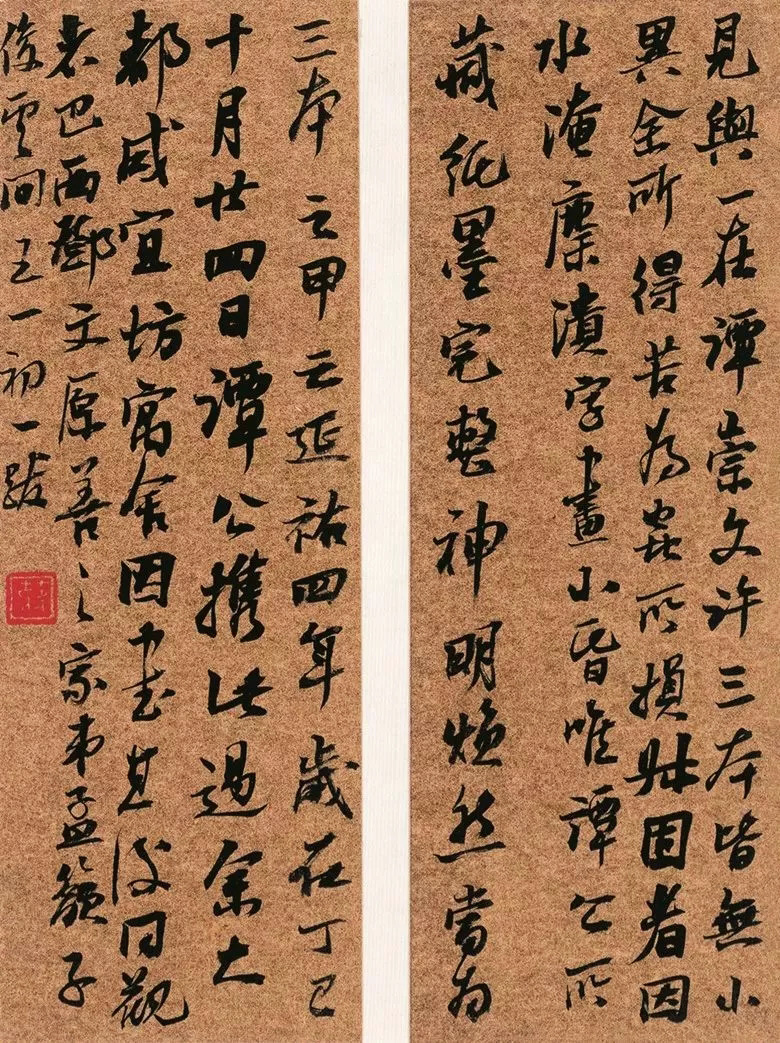 見與一在譚崇文許三本皆無小
異余所得苦為蟲所損固者因
水淹糜潰字畫小昏唯譚公所
藏紙墨完整神明煥然當為
三本之甲云延祐四年歲在丁巳
十月廿四日譚公攜此過余大
都咸宜坊寓舍因書其後同觀
者巴西鄧文原善之家弟孟籲子
俊雲間王一初一跋